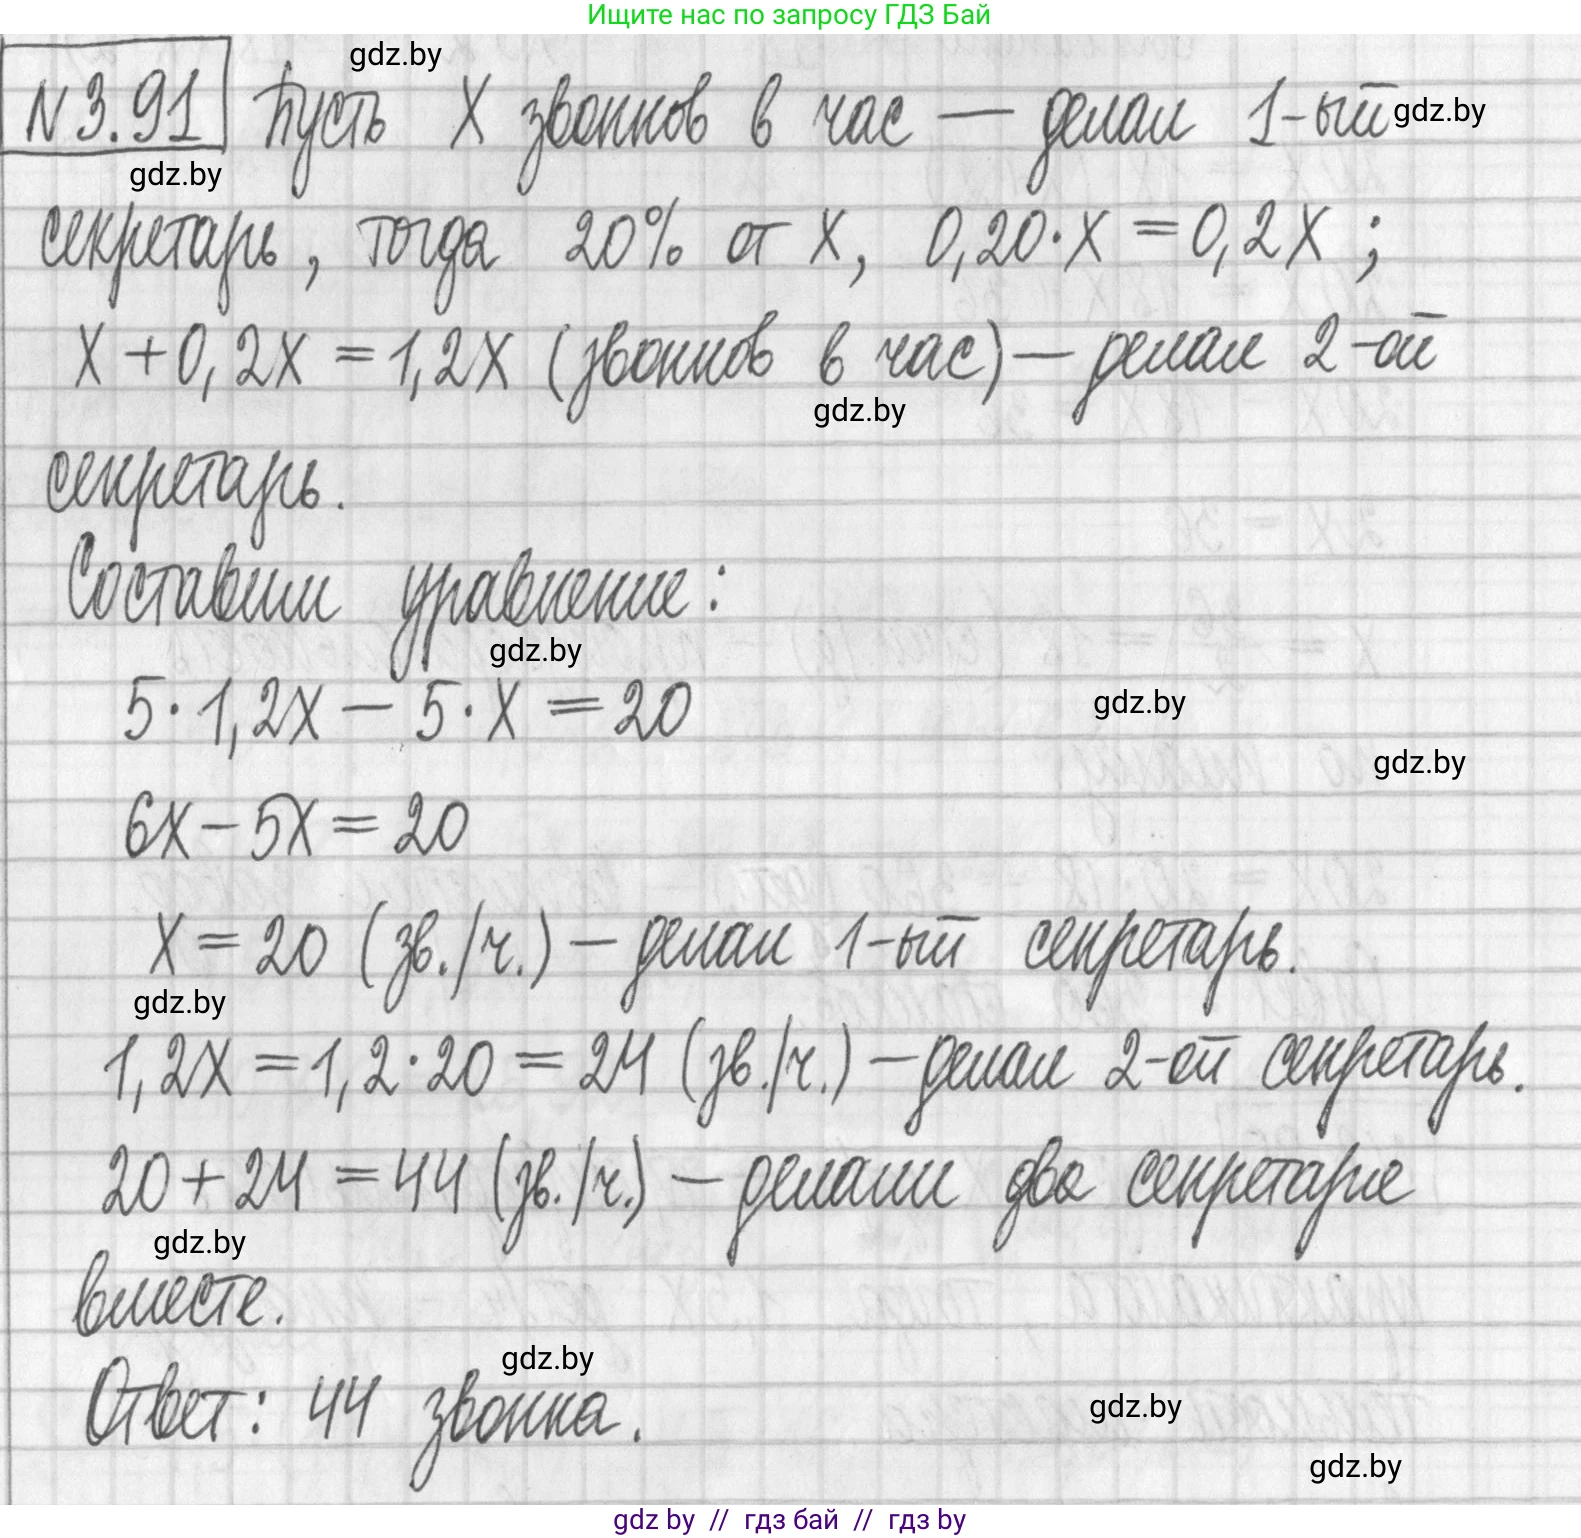 Ищите нас по запросу ГДЗ Бай
gdz.by
№3.91 Пусть X звонков в час — делал 1-ый gdz.by
gdz.by
секретарь, тогда 20% от X, 0,20·X = 0,2X ;
X + 0,2X = 1,2X (звонков в час) — делал 2-ой
gdz.by
секретарь.
Составим уравнение:
gdz.by
5·1,2X — 5·X = 20
gdz.by
gdz.by
6X — 5X = 20
X = 20 (зв./ч.) — делал 1-ый секретарь.
gdz.by
1,2X = 1,2·20 = 24 (зв./ч.) — делал 2-ой секретарь.
20 + 24 = 44 (зв./ч.) — делали два секретаря
gdz.by
вместе.
gdz.by
Ответ: 44 звонка.
gdz.by
gdz.by
gdz by // гдз бай // гдз by